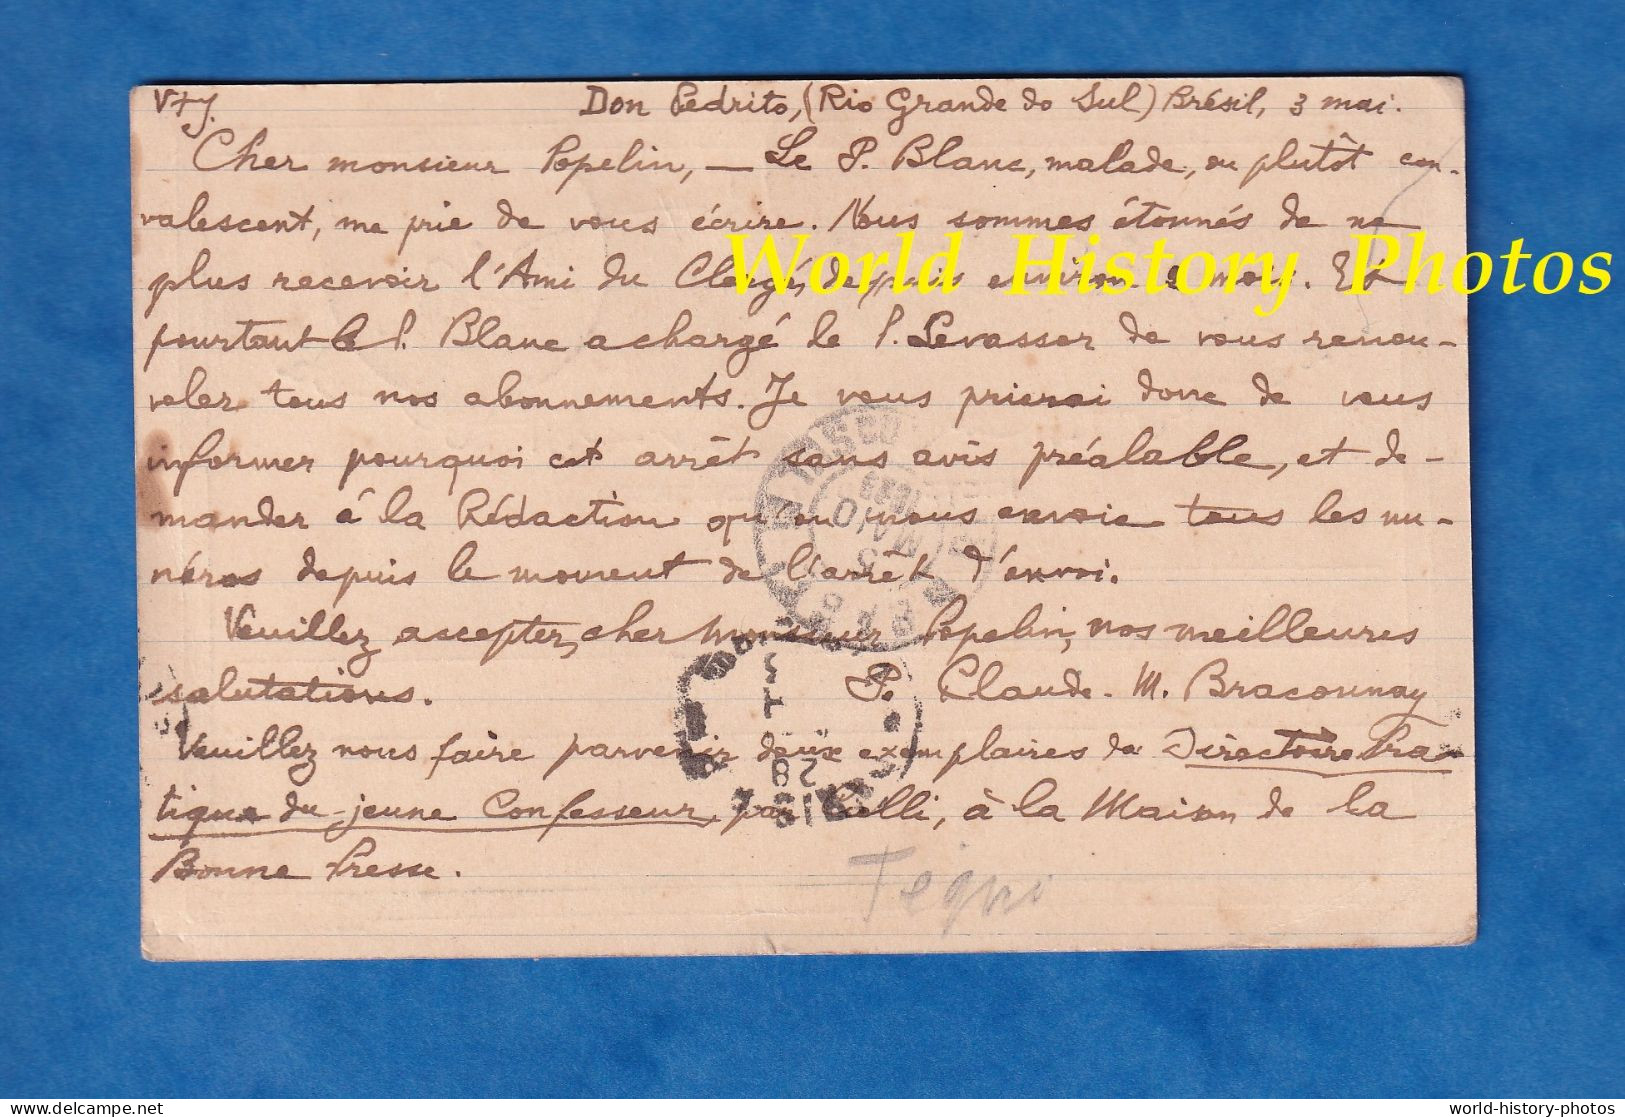 V+J.
Don Pedrito, (Rio Grande do Sul) Brésil, 3 mai.
Cher monsieur Popelin, — Le P. Blanc, malade, ou plutôt con-
valescent, me prie de vous écrire. Nous sommes étonnés de ne
plus recevoir l'Ami du Clergé, depuis environ mois. Et
pourtant le P. Blanc a chargé le P. Levasseur de vous renou-
veler tous nos abonnements. Je vous prierai donc de vous
informer pourquoi cet arrêt sans avis préalable, et de-
mander à la Rédaction qu'on nous envoie tous les nu-
méros depuis le moment de l'arrêt d'envoi.
Veuillez accepter, cher Monsieur Popelin, nos meilleures
salutations. P. Claude-M. Braconnay
Veuillez nous faire parvenir deux exemplaires du Directoire Pra-
tique du jeune Confesseur, par Lelli, à la Maison de la
Bonne Presse.
Téqui
World History Photos
delcampe.net
world-history-photos